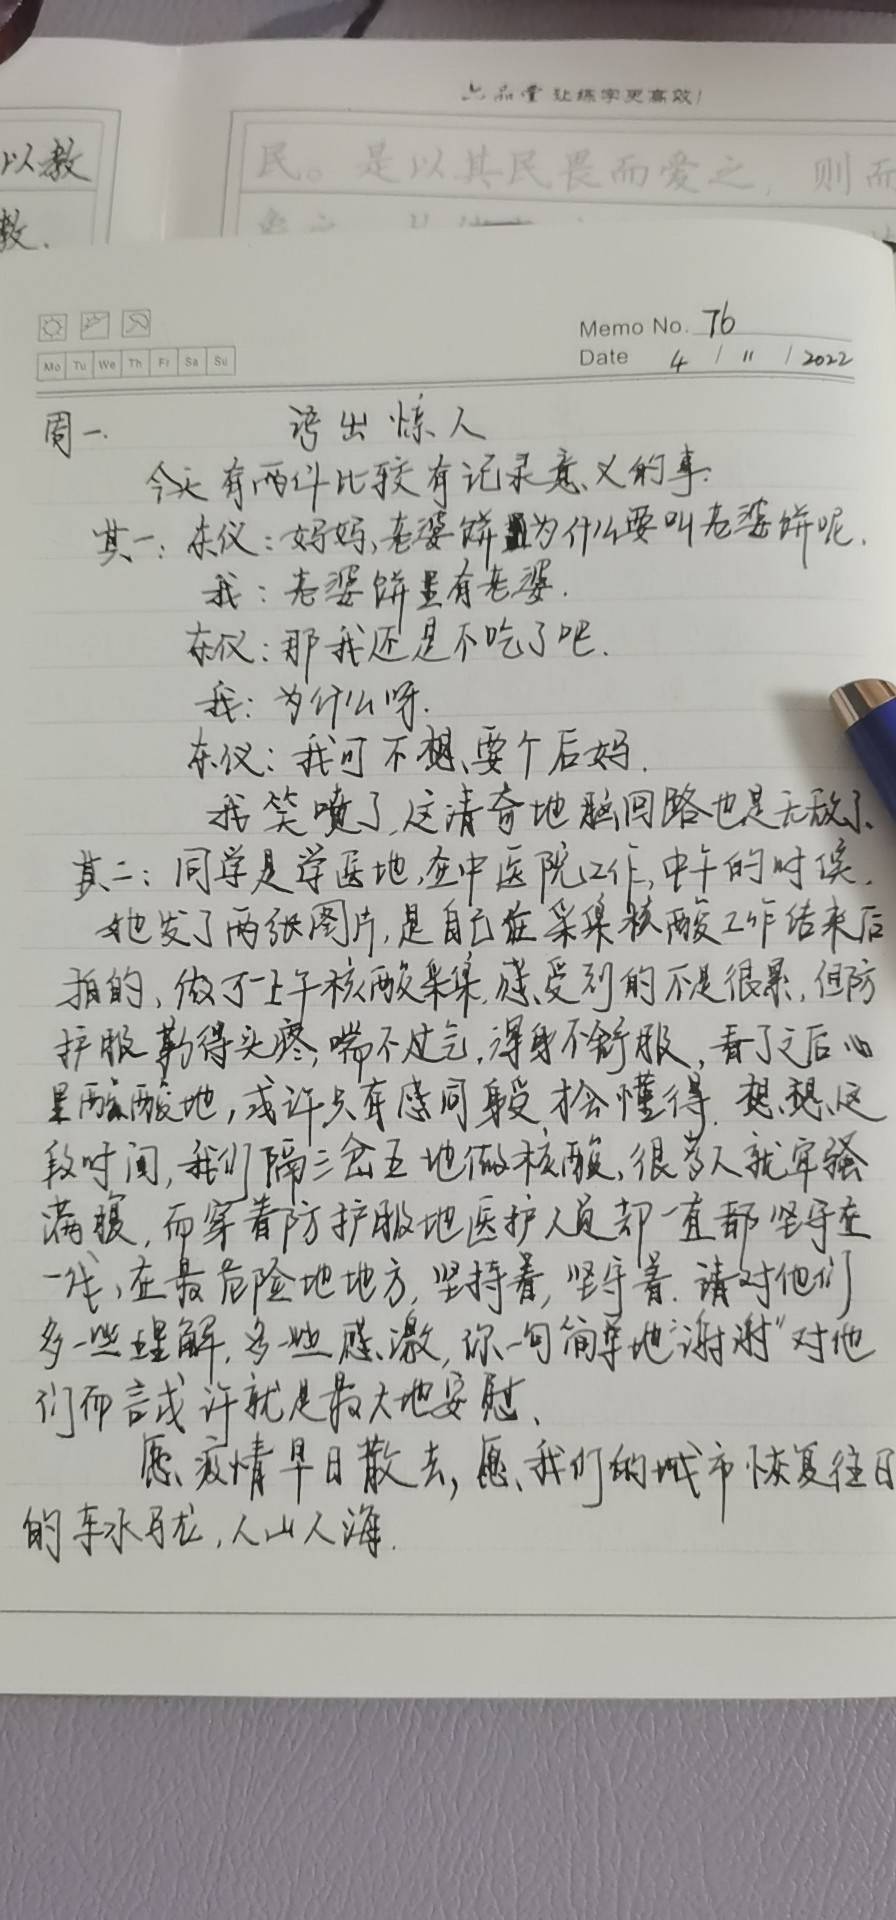 六品堂 让练字更高效!
以教
民。是以其民畏而爱之,则而
教.
Memo No. 76
Mo Tu We Th Fr Sa Su
Date 4 / 11 / 2022
周一. 语出惊人
今天有两件比较有记录意义的事.
其一: 东仪:妈妈,老婆饼为什么要叫老婆饼呢.
我:老婆饼里有老婆.
东仪:那我还是不吃了吧.
我:为什么呀.
东仪:我可不想要个后妈.
我笑喷了,这清奇地脑回路也是无敌了.
其二:同学是学医地,在中医院工作,中午的时候.
她发了两张图片,是自己在采集核酸工作结束后
拍的,做了一上午核酸采集,感受到的不是很累,但防
护服勒得头疼,喘不过气,浑身不舒服,看了之后心
里酸酸地,或许只有感同身受才会懂得.想想这
段时间,我们隔三岔五地做核酸,很多人就牢骚
满腹,而穿着防护服地医护人员却一直都坚守在
一线,在最危险地地方,坚持着,坚守着.请对他们
多一些理解,多一些感激,你一句简单地“谢谢”对他
们而言或许就是最大地安慰.
愿疫情早日散去,愿我们的城市恢复往日
的车水马龙,人山人海.